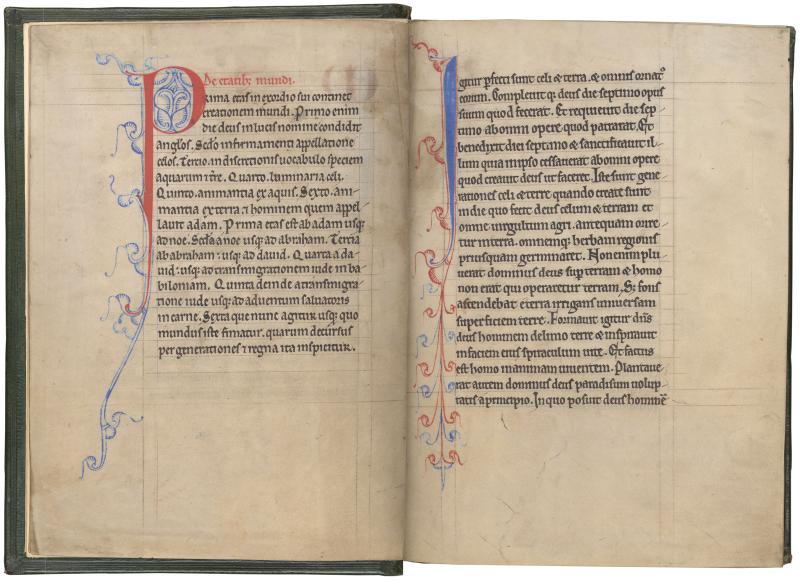 De etatib; mundi.
Prima etas in exordio sui continet
creationem mundi. Primo enim
die deus in lucis nomine condidit
anglos. Scdo in firmamenti appellatione
celos. Tercio. in discretionis uocabulo speciem
aquarum 7 tre. Quarto. luminaria celi.
Quinto. animantia ex aquis. Sexto. ani-
mantia ex terra. 7 hominem quem appel-
lauit adam. Prima etas est ab adam usq;
ad noe. Scda a noe usq; ad abraham. Tercia
ab abraham: usq; ad dauid. Quarta a da-
uid: usq; ad transmigrationem iude in ba-
biloniam. Quinta deinde a transmigra-
tione iude usq; ad aduentum saluatoris
in carne. Sexta que nunc agitur usq; quo
mundus iste finiatur. quarum decursus
per generationes 7 regna ita inspicitur.
Igitur pfecti sunt celi & terra. & omnis ornat'
eorum. Compleuit q; deus die septimo opus
suum quod fecerat. Et requieuit die sep-
timo ab omni opere quod patrarat. Et
benedixit diei septimo & sanctificauit il-
lum quia in ipso cessauerat ab omni opere
quod creauit deus ut faceret. Iste sunt gene-
rationes celi & terre quando create sunt
in die quo fecit deus celum & terram et
omne uirgultum agri. antequam orire-
tur in terra. omnemq; herbam regionis
priusquam germinaret. Non enim plu-
uerat dominus deus sup terram & homo
non erat qui operaretur terram. S; fons
ascendebat e terra irrigans uniuersam
superficiem terre. Formauit igitur dns
deus hominem de limo terre & inspirauit
in faciem eius spiraculum uite. Et factus
est homo in animam uiuentem. Plantaue-
rat autem dominus deus paradisum uolup-
tatis a principio. In quo posuit deus hominē